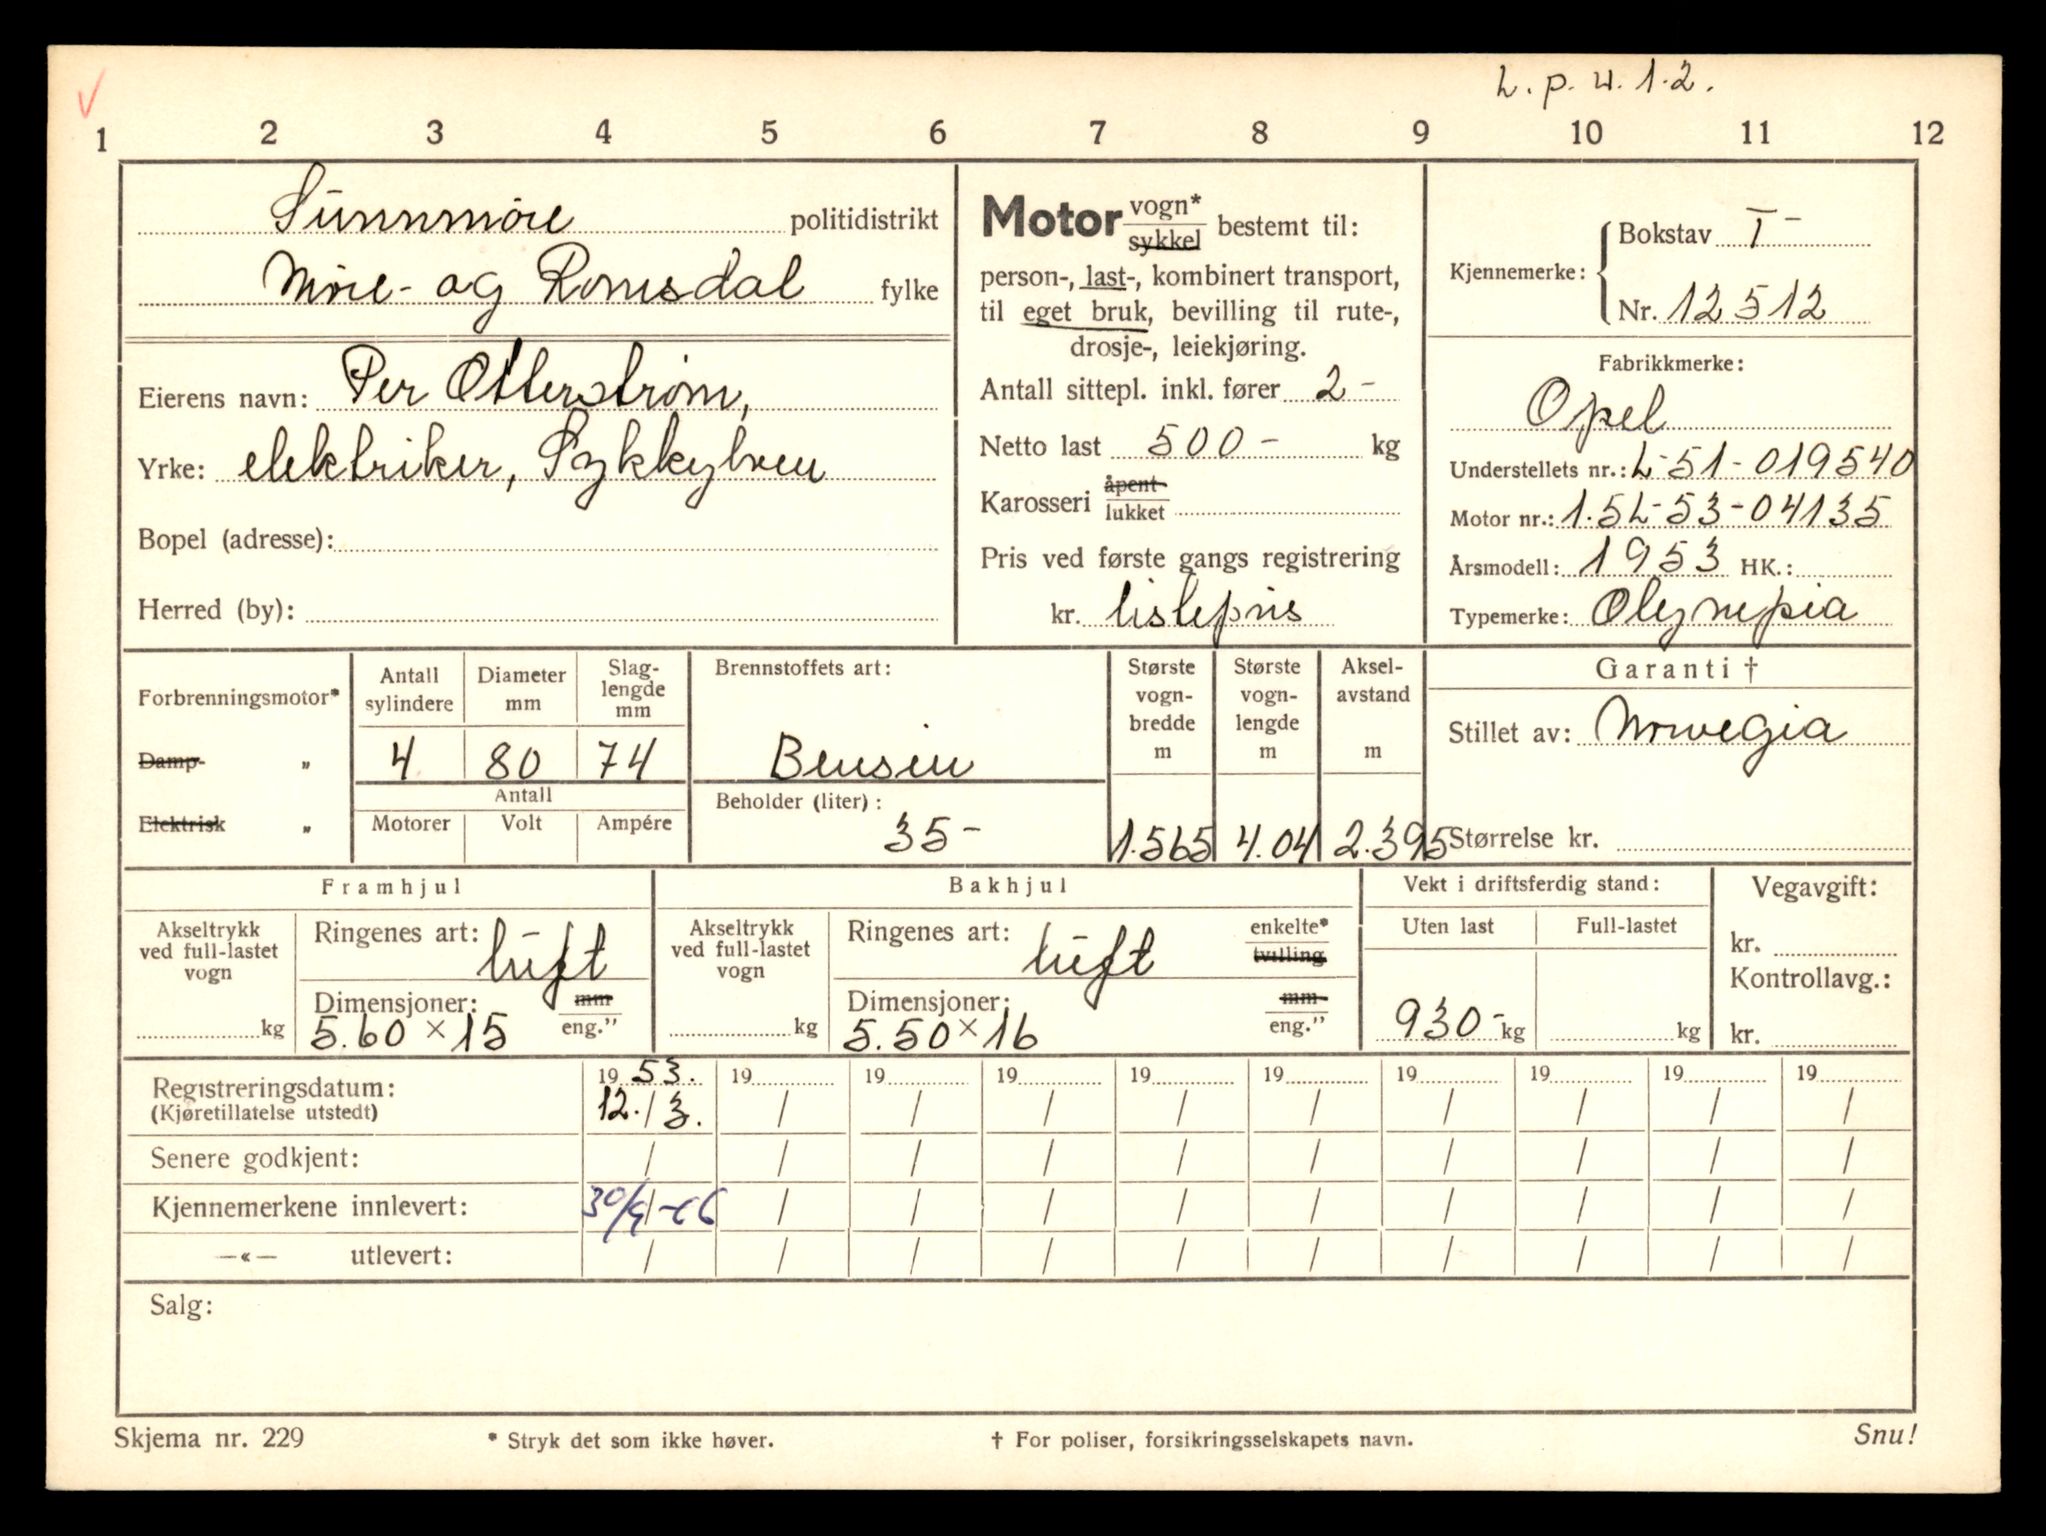 L. p. w. 1-2.
1 2 3 4 5 6 7 8 9 10 11 12
Sunnmøre politidistrikt
Møre- og Romsdal fylke
Eierens navn: Per Otterstrøm,
Yrke: elektriker, Sykkylven
Bopel (adresse):
Herred (by):
Motor vogn*
sykkel bestemt til:
person-, last-, kombinert transport,
til eget bruk, bevilling til rute-,
drosje-, leiekjøring.
Antall sittepl. inkl. fører 2 -
Netto last 500 - kg
Karosseri åpent
lukket
Pris ved første gangs registrering
kr. listepris
Kjennemerke: Bokstav T -
Nr. 12512
Fabrikkmerke:
Opel
Understellets nr.: L-51-019540
Motor nr.: 1.5L-53-04135
Årsmodell: 1953 HK.:
Typemerke: Olympia
Forbrenningsmotor*
Damp- „
Elektrisk „
Antall sylindere
Diameter mm
Slag-lengde mm
4 80 74
Antall
Motorer Volt Ampére
Brennstoffets art:
Bensin
Beholder (liter):
35 -
Største vogn-bredde m
1.565
Største vogn-lengde m
4.04
Aksel-avstand m
2.395
Garanti †
Stillet av: Norvegia
Størrelse kr.
Framhjul
Akseltrykk
ved full-lastet
vogn
kg
Ringenes art: luft
Dimensjoner: mm
5.60 × 15 eng.”
Bakhjul
Akseltrykk
ved full-lastet
vogn
kg
Ringenes art: luft enkelte*
tvilling
Dimensjoner: mm
5.50 × 16 eng.”
Vekt i driftsferdig stand:
Uten last Full-lastet
930 - kg kg
Vegavgift:
kr.
Kontrollavg.:
kr.
Registreringsdatum: 1953. 19 19 19 19 19 19 19 19 19
(Kjøretillatelse utstedt) 12. / 3. / / / / / / / / /
Senere godkjent: / / / / / / / / / /
Kjennemerkene innlevert: 30/9-66 / / / / / / / / /
—«— utlevert: / / / / / / / / / /
Salg:
Skjema nr. 229 * Stryk det som ikke høver. † For poliser, forsikringsselskapets navn. Snu!